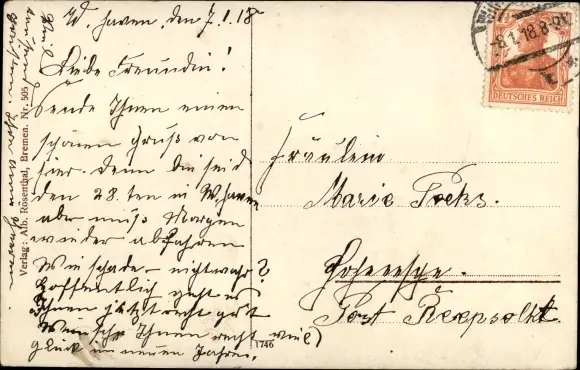 W. haven, den 7.1.18
Liebe Freundin!
Sende Ihnen einen
schönen Gruß von
hier. Denn bin seid
den 28. ten in W. haven
aber muß Morgen
wieder abfahren
Wie schade - nicht wahr?
Hoffentlich geht es
Ihnen jetzt recht gut
Wünsche Ihnen recht viel
Glück im neuen Jahre.
Verlag: Alb. Rosenthal, Bremen. Nr. 505
1746
-8.1.18.8-9V.
DEUTSCHES REICH
Fräulein
Marie
Post Reepsholt